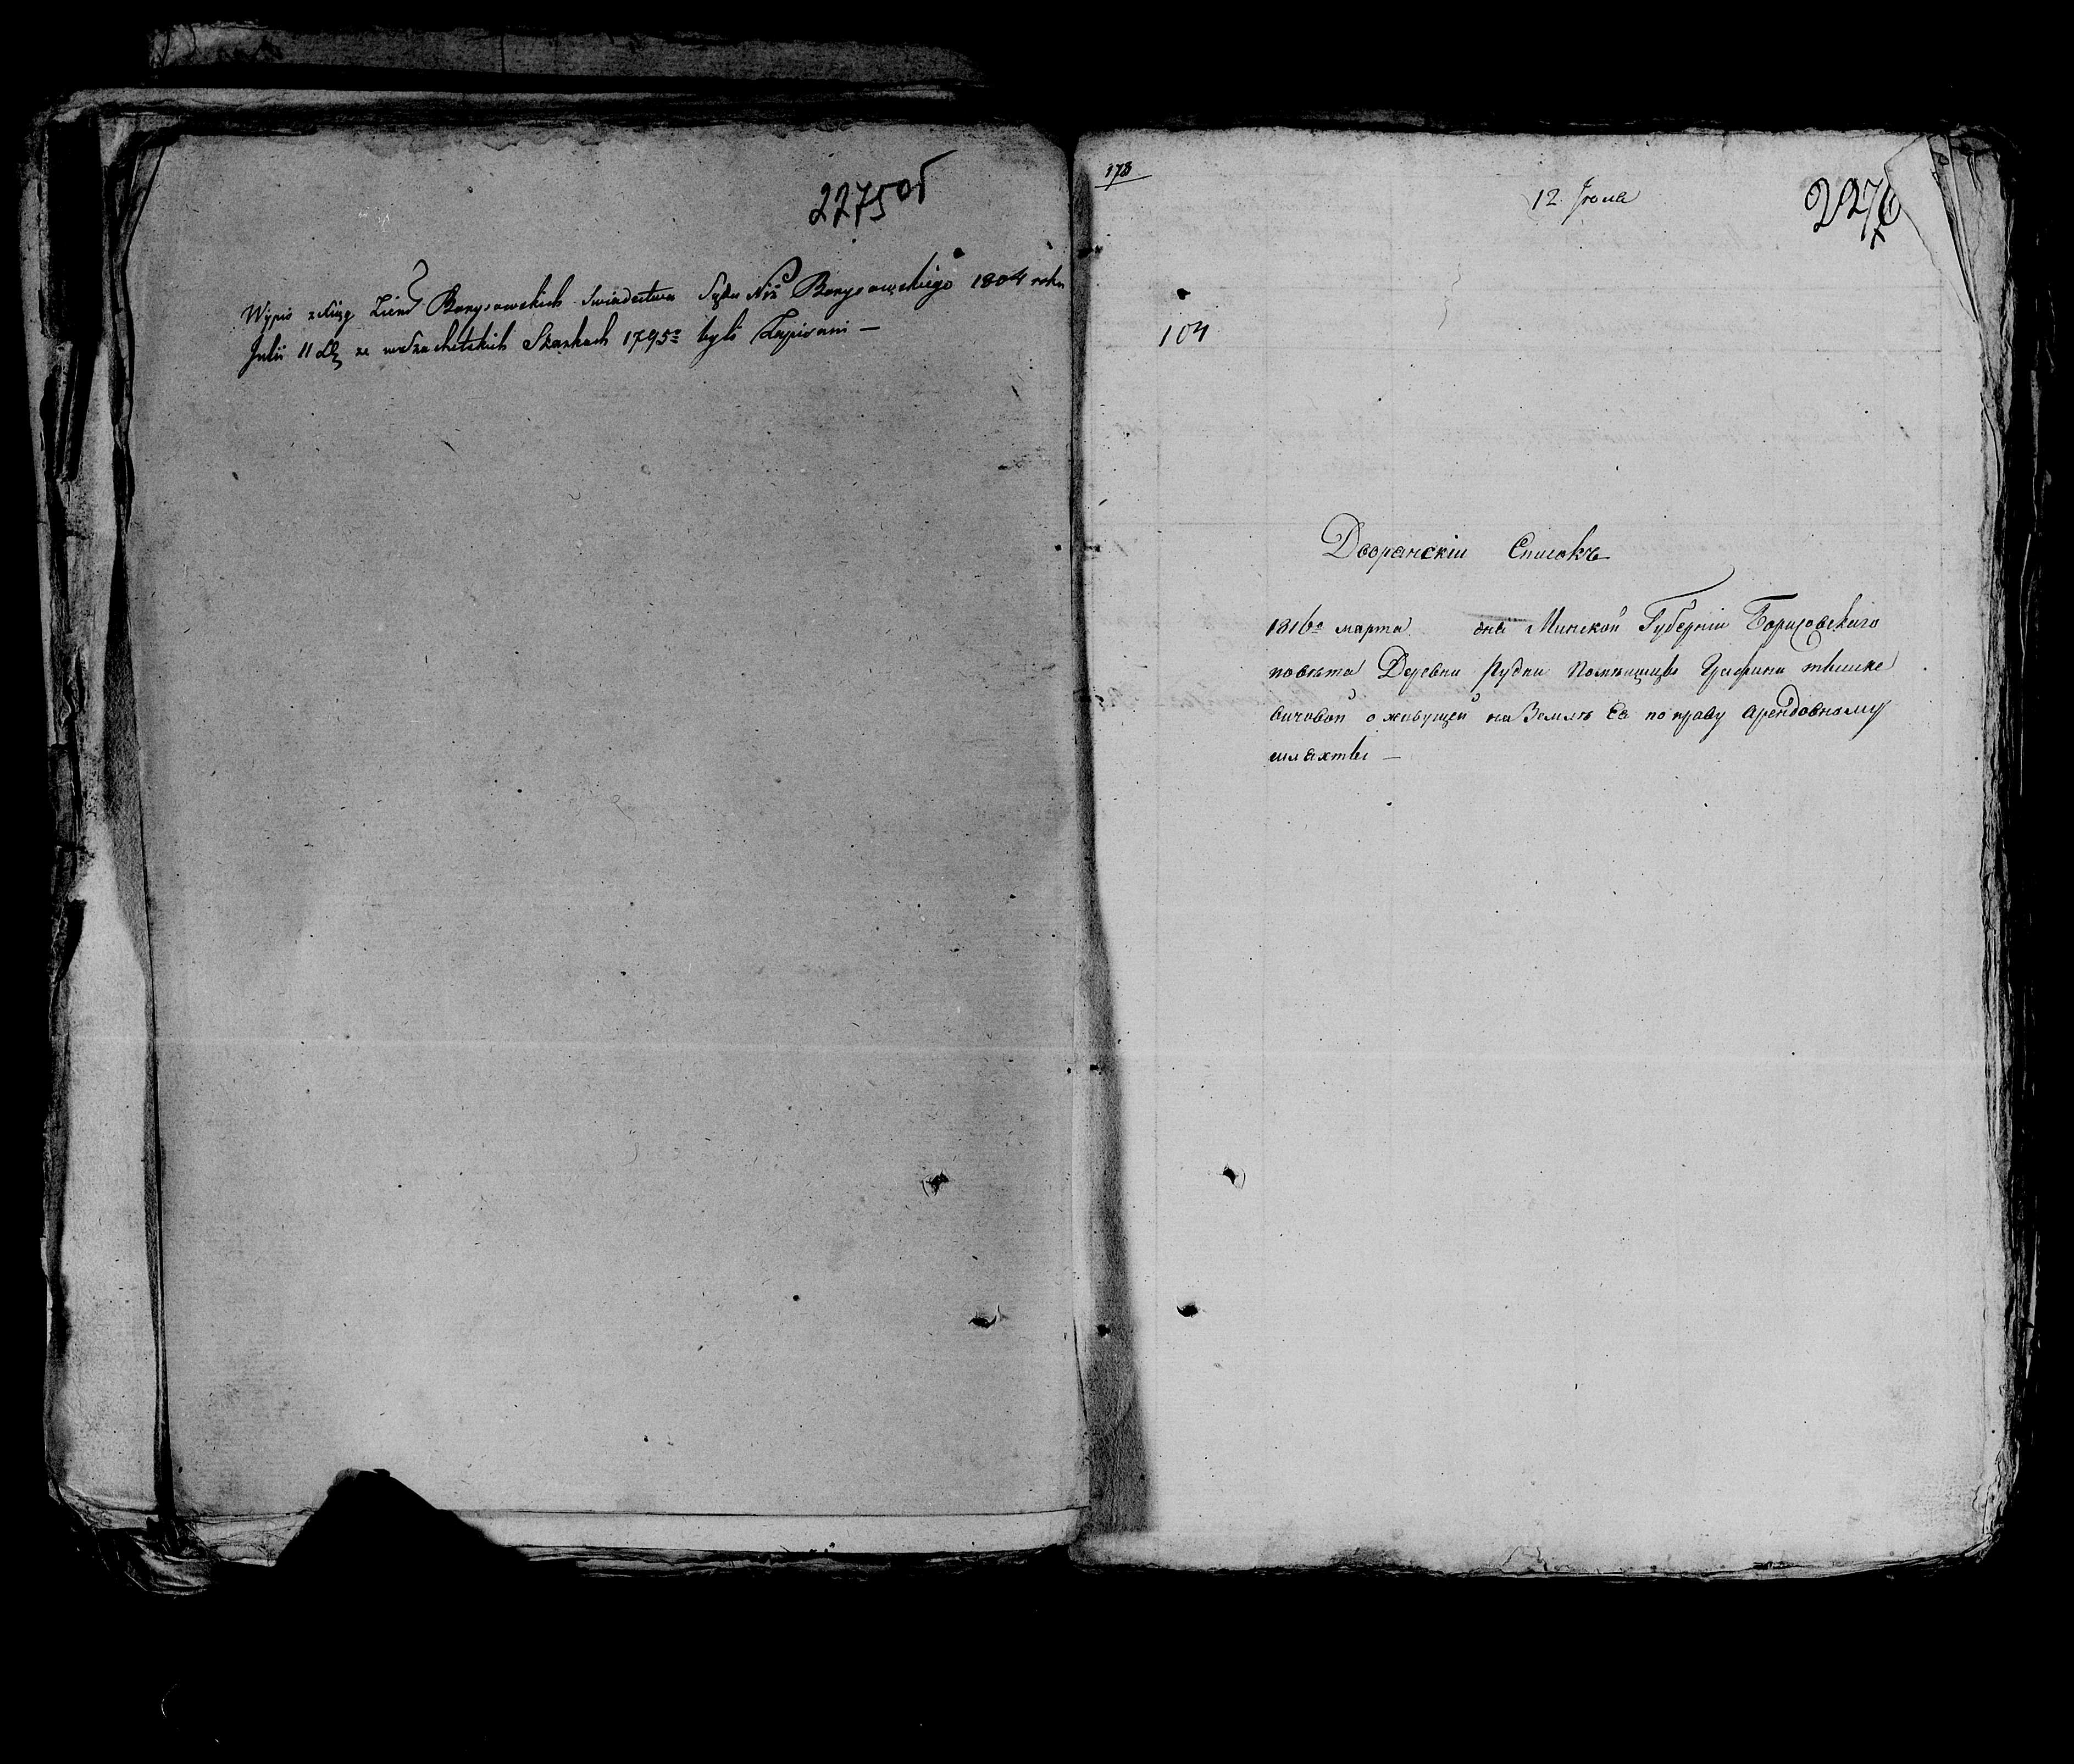 2275об
Wypis z Xiąg Ziem Borysowskich Świadectwa Sądu Niż Borysowskiego 1804 roku
Julii 11 D. że w Szlachetskich Skazkach 1795º byli Zapisani —
178
12 Iюня
2276
104
Дворянскiи Списокъ
1816го марта дня Минской Губернiи Борисовского
повѣта Деревни Рудни Помѣщицы Графини тышке
вичовой о живущей на Землѣ Ее по праву арендовному
шляхты —